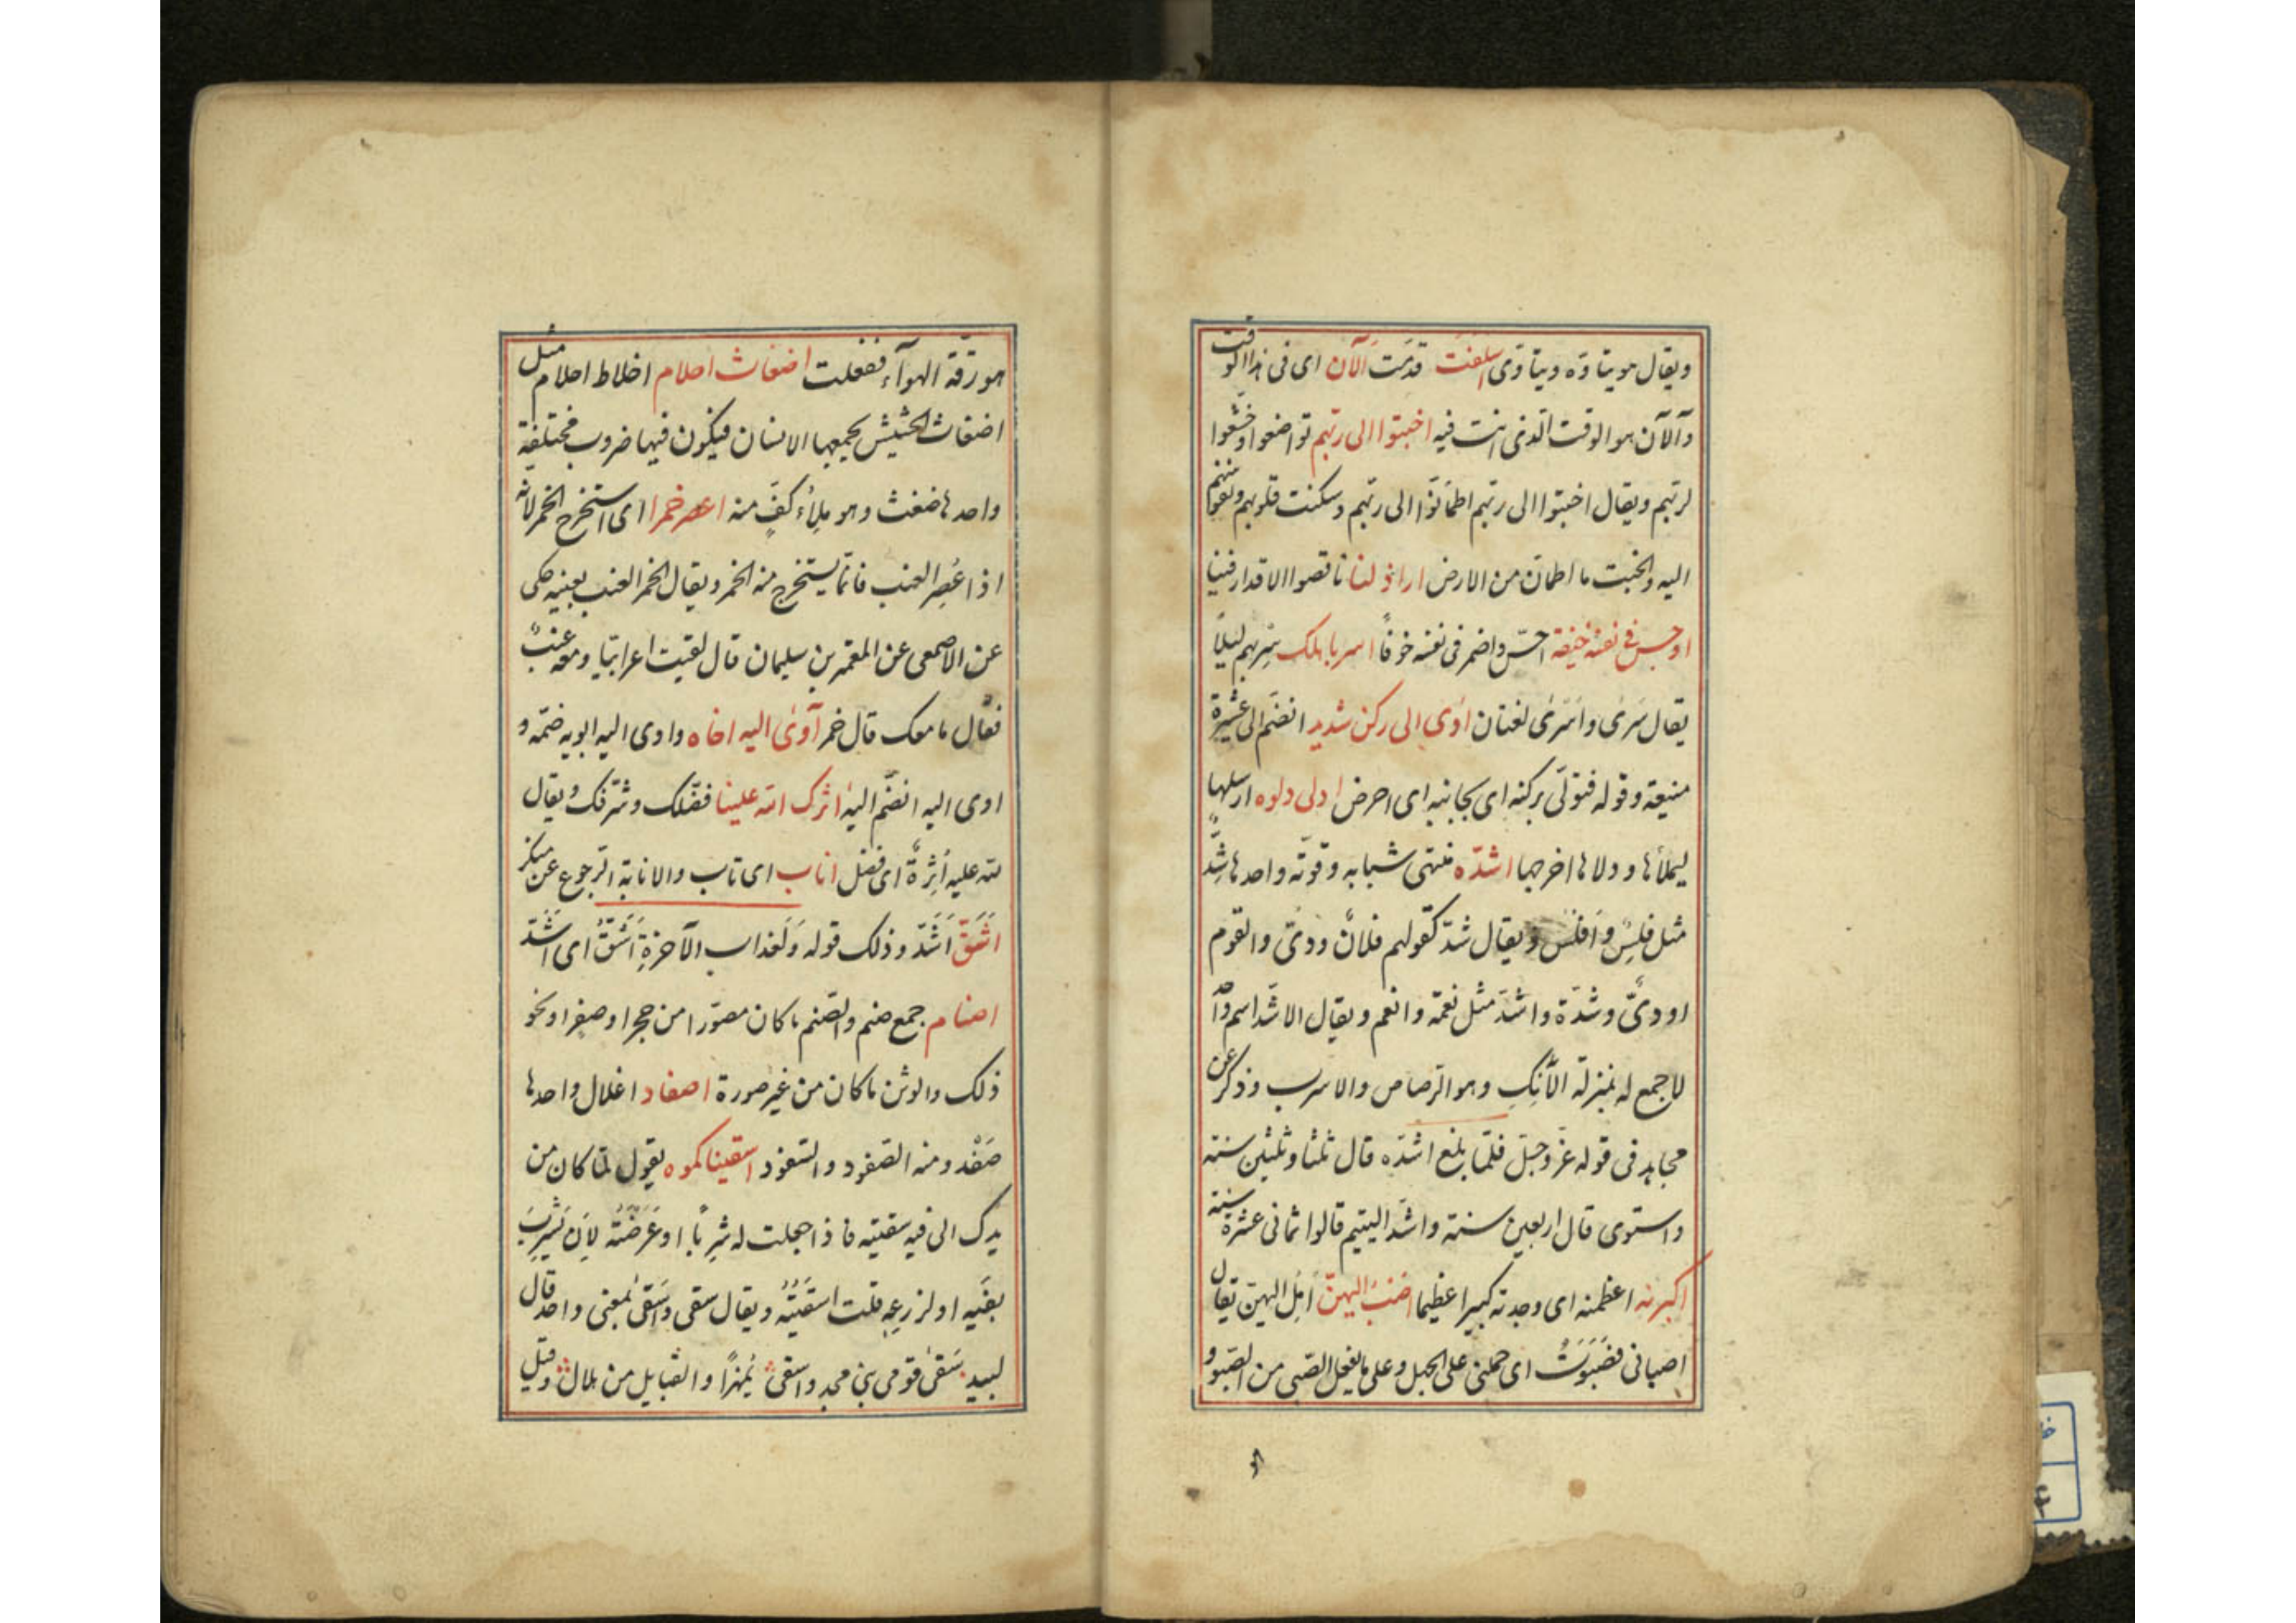 ويقال هو يتاوّه ويتاوّى اسلفت قدّمت آلآن اى فى هذا الوقت
وآلآن هو الوقت الّذى انت فيه اخبتوا الى ربّهم تواضعوا وخشّعوا
لربّهم ويقال اخبتوا الى ربّهم اطمانّوا الى ربّهم وسكنت قلوبهم ونفوسهم
اليه والخبت ما اطمانّ من الارض اراذلنا ناقصوا الاقدار فينا
اوجس فى نفسه خيفة احسّ واضمر فى نفسه خوفًا اسر باهلك سِر بهم ليلًا
يقال سَرى واَسْرى لغتان اوى الى ركن شديد انضمّ الى عشيرة
منيعة وقوله فتولّى بركنه اى بجانبه اى اعرض ادلى دلوه ارسلها
ليملأها و دلاها اخرجها اشدّه منتهى شبابه وقوّته واحدها شَدٌّ
مثل فلس وافلس ويقال شدّ كقولهم فلانٌ ودىّ والقوم
اودىٌّ وشدّة واشدّ مثل نعمة وانعم ويقال الاشدّ اسم واحد
لا جمع له بمنزلة الآنك وهو الرّصاص والاسرب وذكر عن
مجاهد فى قوله عزّ وجلّ فلمّا بلغ اشدّه قال ثلثا وثلثين سنة
واستوى قال اربعين سنة واشدّ اليتيم قالوا ثمانى عشرة سنة
اكبرنه اعظمنه اى وجدته كبيرا عظيما اصبُ اليهنّ اَمِل اليهنّ يقال
اصبانى فصَبَوتُ اى حملنى على الجهل وعلى ما يفعل الصّبى من الصّبو و
هو رقّة الهوآء ففعلت اضغاث احلام اخلاط احلام مثل
اضغاث الحشيش يجمعها الانسان فيكون فيها ضروب مختلفة
واحدها ضغث وهو ملِأ كفٍّ منه اعصر خمرا اى استخرج الخمر لانّه
اذا عُصِر العنب فانّما يستخرج منه الخمر ويقال الخمر العنب بعينه حكى
عن الاصمعى عن المعتمر بن سليمان قال لقيت اعرابيّا ومعه عنبٌ
فقال ما معك قال خمر آوى اليه اخاه واوى اليه ابويه ضمّه و
اوى اليه انضمّ اليه اثرك الله علينا فضّلك وشرّفك ويقال
له عليه اُثِرةٌ اى فضل اناب اى تاب والانابة الرّجوع عن منكر
اَشَقّ اَشَدّ وذلك قوله ولَعذاب الآخرةِ اَشَقُّ اى اشدّ
اصنام جمع صنم والصّنم ما كان مصوّرا من حجر او صفر او نحو
ذلك والوثن ما كان من غير صورة اصفاد اغلال واحدها
صَفْد ومنه الصّفود والسّفود اسقيناكموه يقول لمّا كان من
يدك الى فيه سقيته فاذا جعلت له شِربًا او عَرَّضْتَه لِاَن يَشرِبَ
بفيه او لزرعِه قلت اسقَيْتُه ويقال سقى واَسقَى بمعنى واحد قال
لبيد سَقى قومى بنى مجد واسقى نُمَيْرًا والقبايل من هلال وقيل